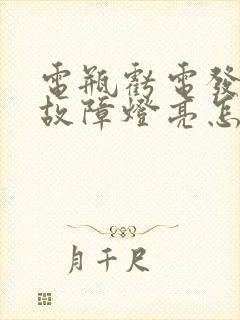 電瓶虧電發
故障燈亮怎
月千尺